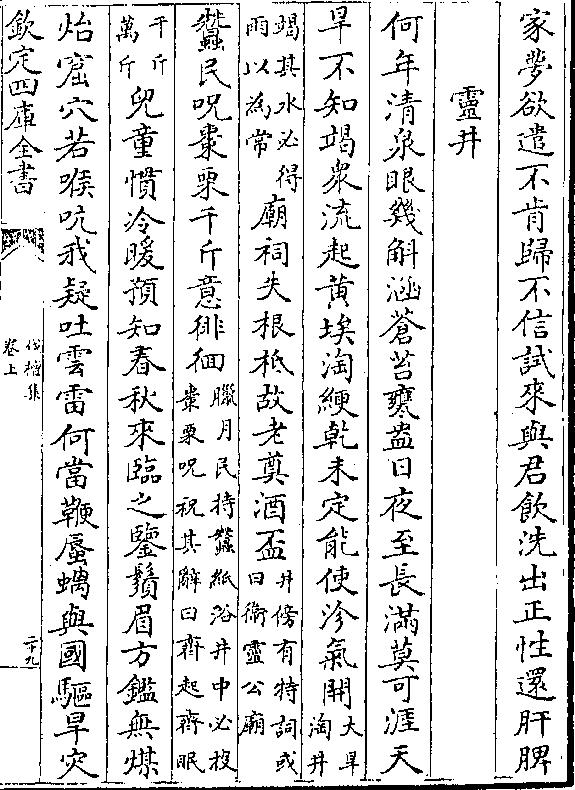 家夢欲遣不肯歸不信試來與君飲洗出正性還肝脾
靈井
何年清泉眼幾斛涵蒼苔甕盎日夜至長滿莫可涯天
旱不知竭衆流起黄埃淘綆乾未定能使沴氣開大旱淘井
竭其水必得雨以為常廟祠失根柢故老奠酒盃井傍有特詞或曰衛靈公廟
蠶民呪棗栗千斤意徘徊臘月民持蠶紙浴井中必投棗栗呪祝其辭曰齊起齊眠
千斤萬斤兒童慣冷暖預知春秋來臨之鑒鬚眉方鑑無煤
炲窟穴若喉吭我疑吐雲雷何當鞭蜃螭與國驅旱灾
欽定四庫全書
伐檀集
卷上
二十九